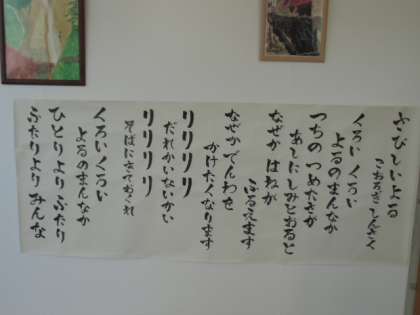 さびしいよる
こおろぎしんさく
くろい くろい
よるのまんなか
つちの つめたさが
あしにしみとおると
なぜか はねが
ふるえます
なぜかでんわを
かけたくなります
リリリリ
だれかいないかい
リリリリ
そばにきておくれ
くろいくろい
よるのまんなか
ひとりより ふたり
ふたりより みんな